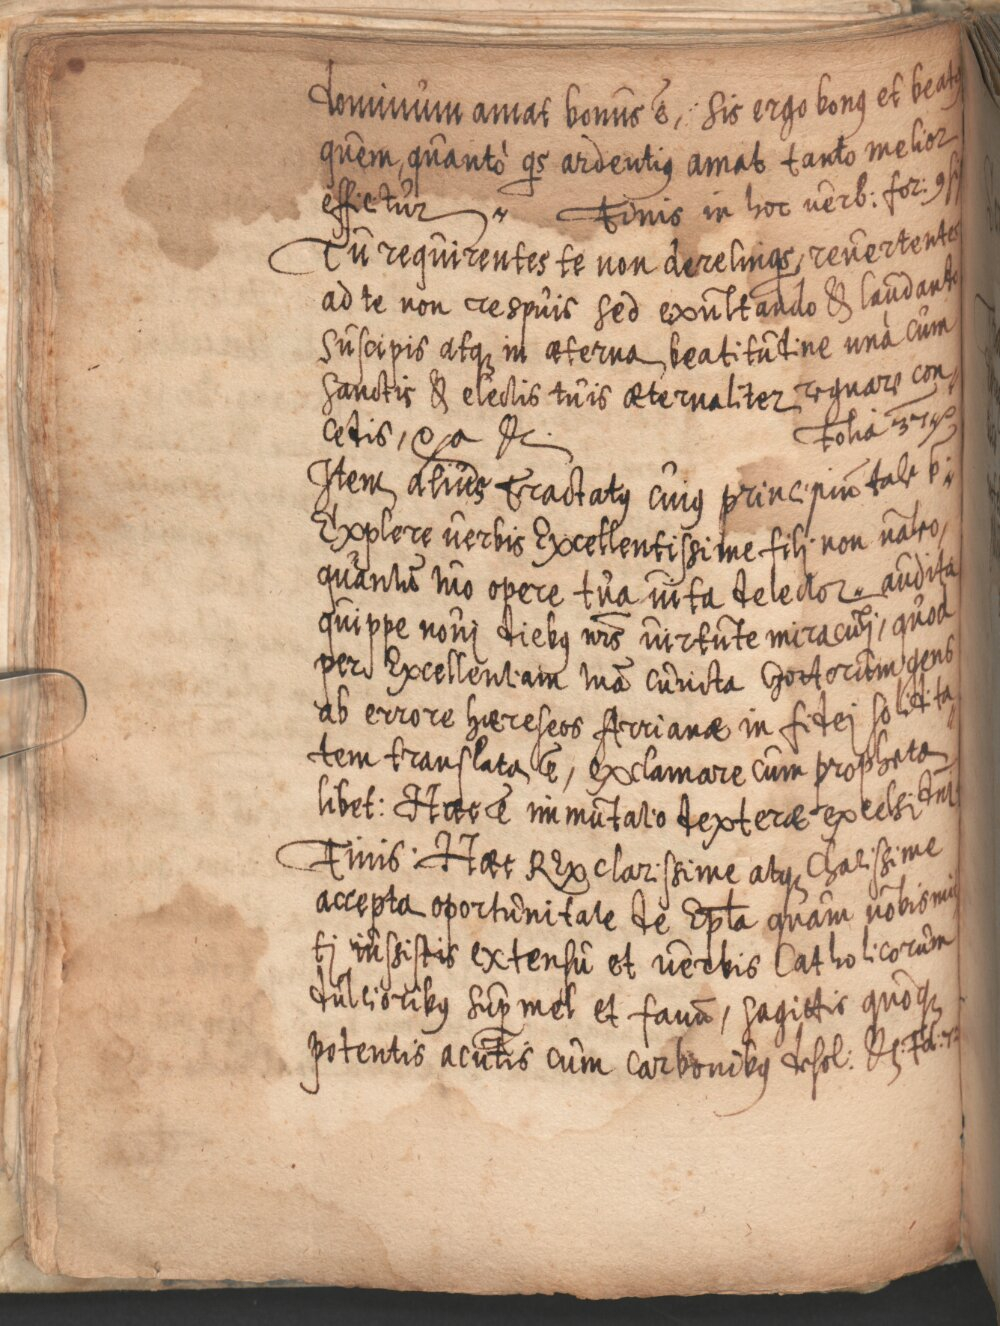 dominûm amat bonûs ē, sis ergo bonꝰ et beatꝰ
quêm, quântò qs ardentiꝰ amat tanto melior
efficitûr „ Finis in hoc uerb: for: ꝯsi
Tû requîrentes te non derelinqs, reûertentes
ad te non respûis sed exûltando & laûdando
sûscipis atqꝫ in æterna beatitûdine unà cûm
sanctis & electis tûis æternaliter regnare con„
cedis, &c.
Item aliûs Tractatꝰ cûiꝰ principiū tale
Explere ûerbis Excellentissime filj non ualeo,
quântū mo opere tûa ûita delector „ aûdita
quîppe noûj diebꝰ nrīs ûirtûte miraculj, quôd
per Excellentiam tuā cûncta Gottorûm gens
ab errore hæreseos Arrianæ in fidej solidita„
tem translata ē, exclamare cûm propheta
libet: Hæc ē immûtatio dexteræ excelsi
Finis. Hæc REx clarissime atqꝫ Charissime
accepta oportûnitate de Epla quâm uobis mi„
tj iûssistis extensû et ûerbis Catholicorûm
dûlcioribꝰ sup mel et faûū, sagittis quôqꝫ
potentis acûtis cûm carbonibꝰ desol: &c: Fol: